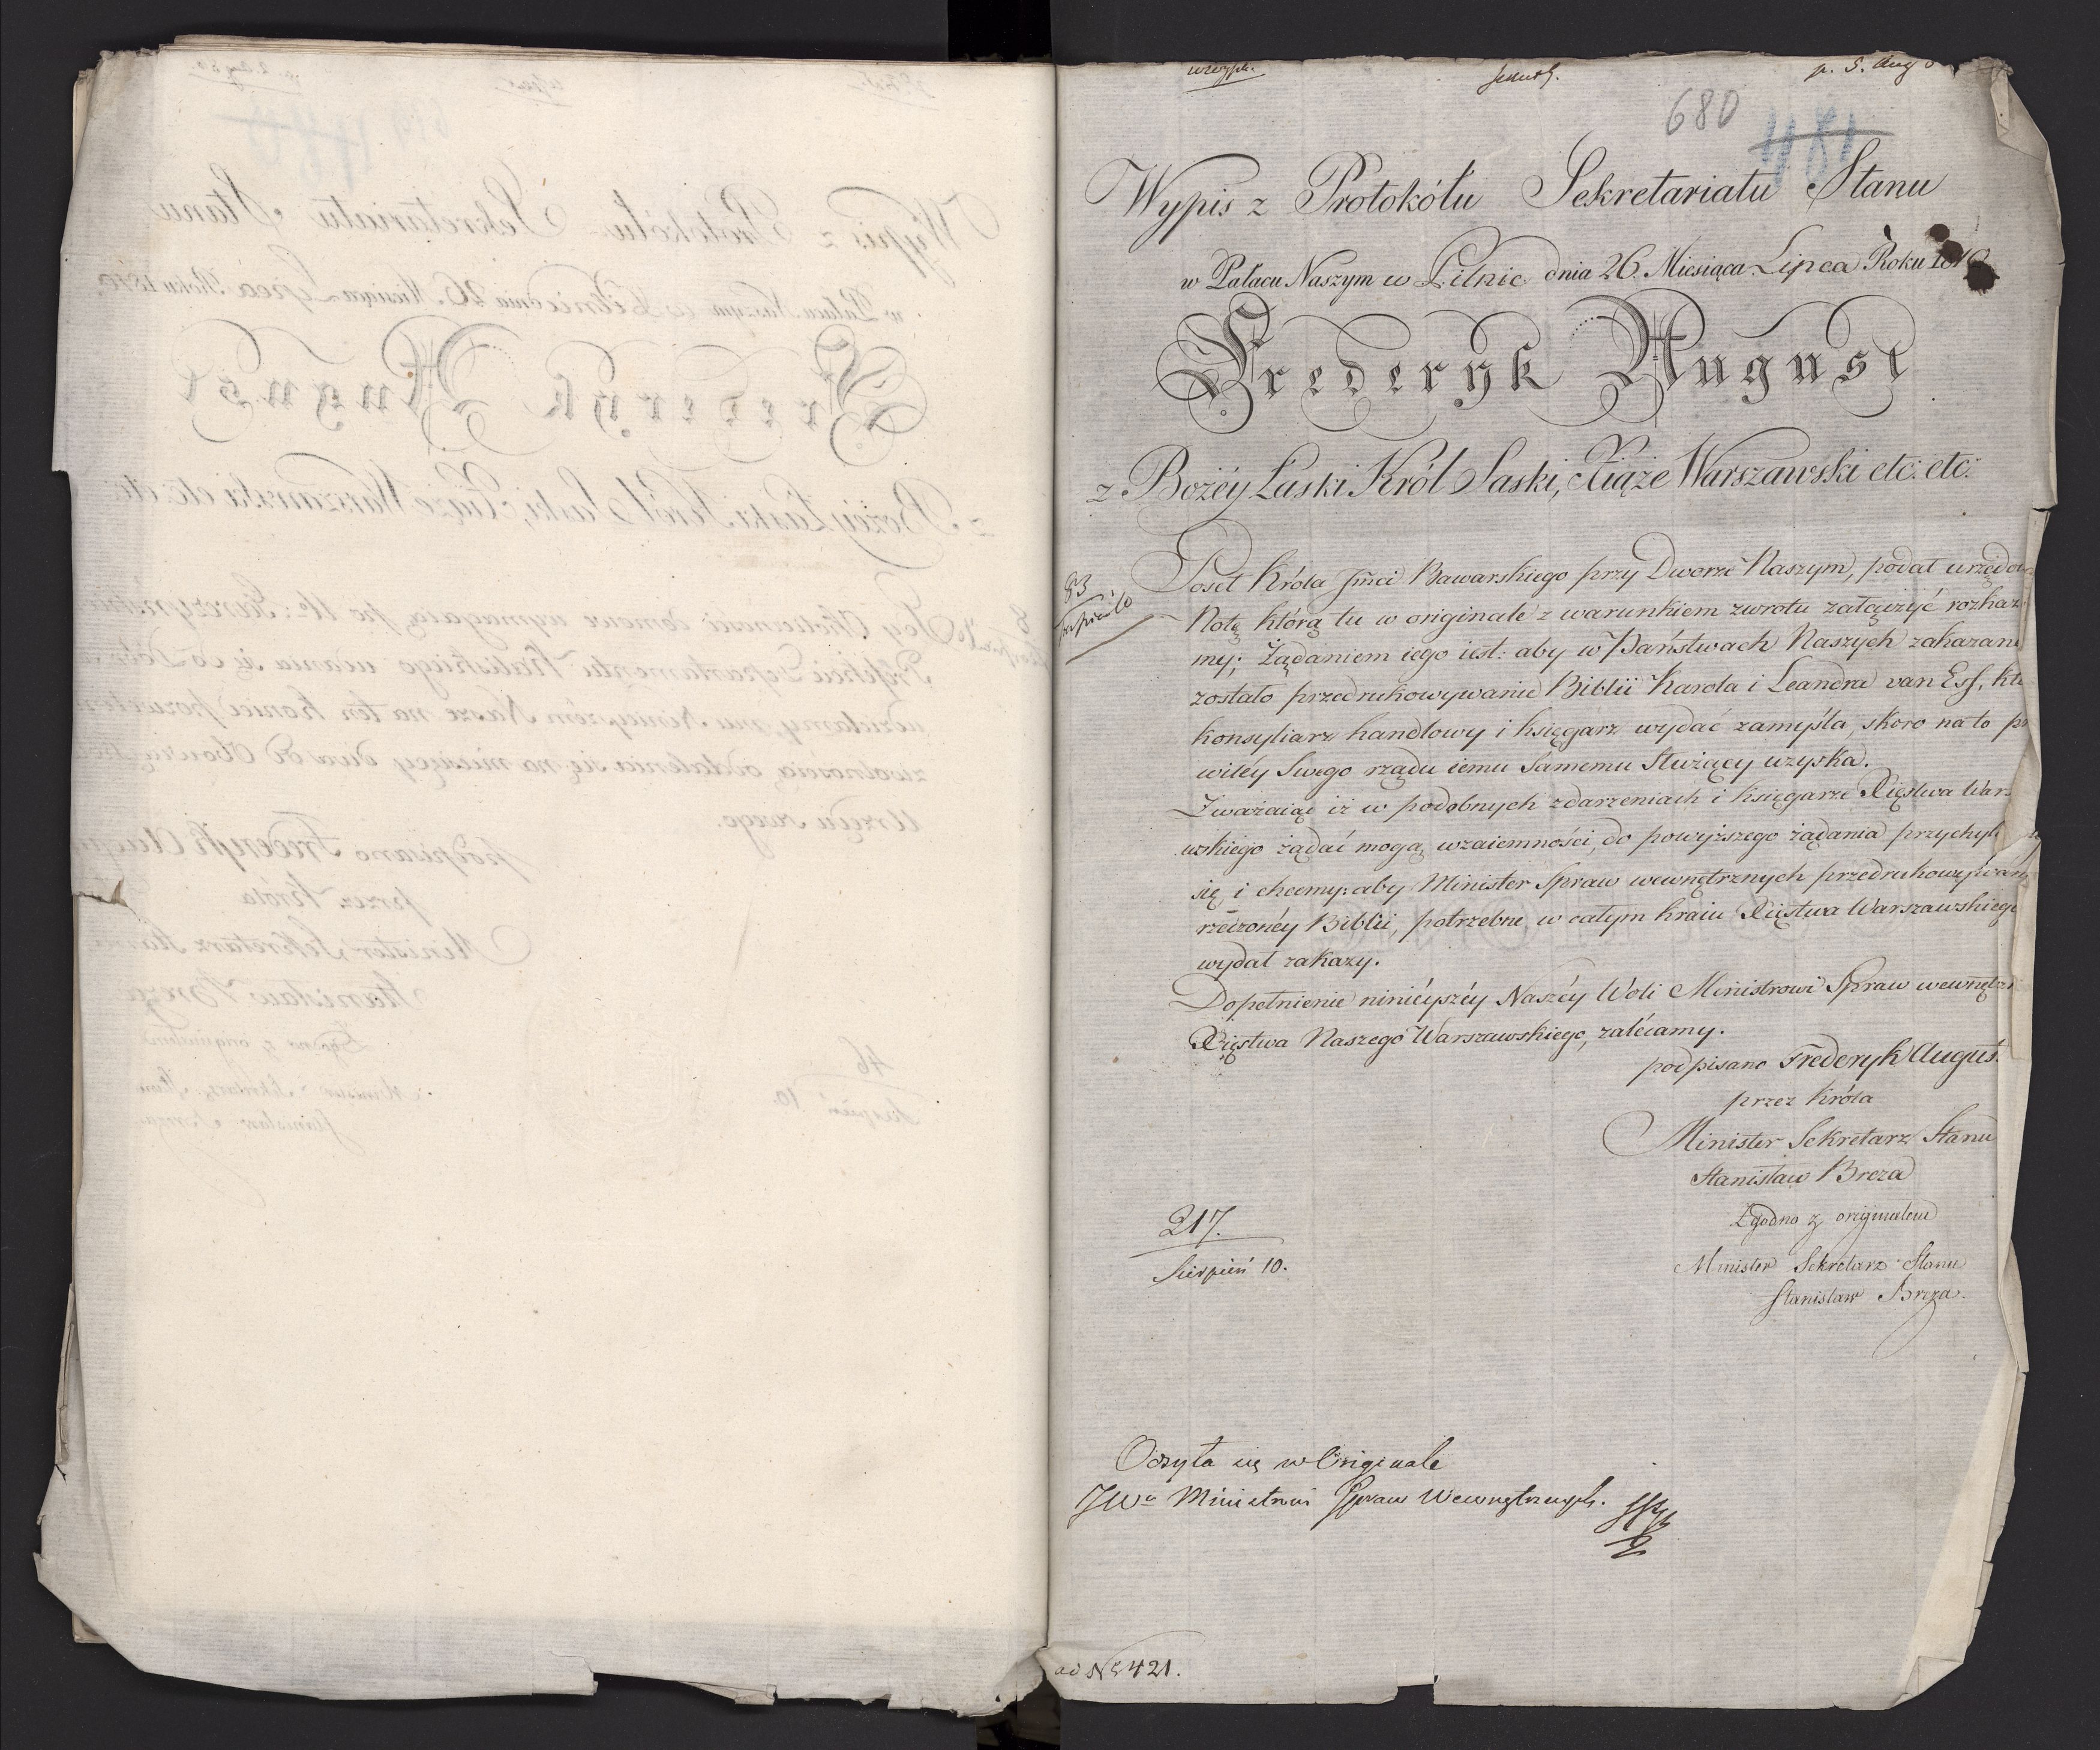 p. 5. Aug
680
481
Wypis z Protokółu Sekretariatu Stanu
w Pałacu Naszym w Pilnic dnia 26. Miesiąca Lipca Roku 1810
Frederyk August
z Bożéy Łaski Król Saski, Xiąże Warszawski etc: etc:
83
Poseł Króla Jmci Bawarskiego przy Dworze Naszym, podał urzędow
Notę którą tu w originale z warunkiem zwrotu załączyć rozkaz
my; Żądaniem iego iest: aby w Państwach Naszych zakazane
zostało przedrukowywanie Biblii Karola i Leandra van Ess, któ
konsyliarz handlowy i księgarz wydać zamyśla, skoro na to prz
wiléy Swego rządu iemu Samemu Służący uzyska.
Zważaiąc iż w podobnych zdarzeniach i księgarze Xięstwa War-
wskiego żądać mogą wzaiemności, do powyższego żądania przychyl
się i chcemy: aby Minister Spraw wewnętrznych przedrukowywan
rzeczonéy Biblii, potrzebne w całym kraiu Xięstwa Warszawskiego
wydał zakazy.
Dopełnienie niniéyszéy Naszéy Woli Ministrowi Spraw wewnętrz
Xięstwa Naszego Warszawskiego, zalécamy.
podpisano Frederyk August.
przez Króla
Minister Sekretarz Stanu
Stanisław Breza
Zgodno z oryginałem
Minister Sekretarz Stanu
Stanisław Breza.
217.
Sierpień 10.
Odsyła się w Originale
JWu Ministrowi Spraw Wewnętrznych.
ad No 421.